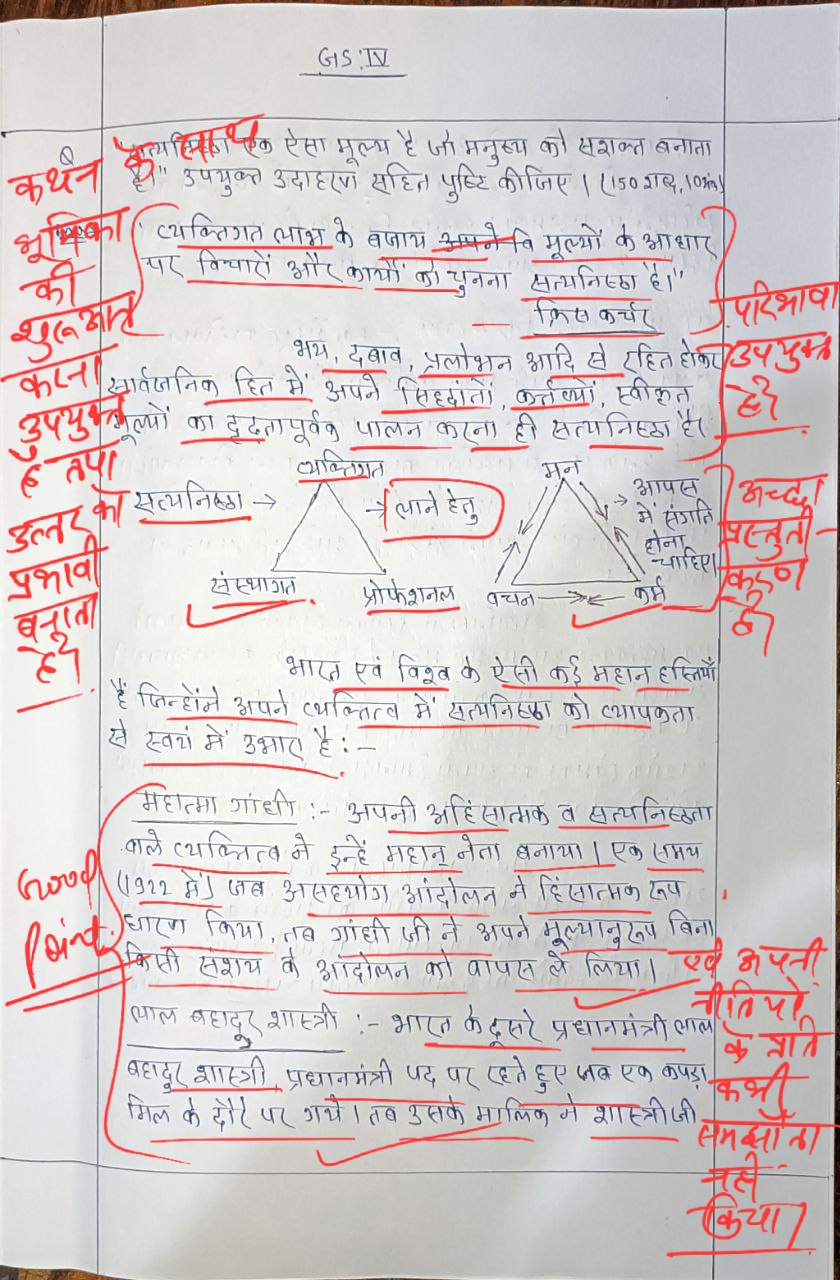 GS:IV
Q "सत्यनिष्ठा एक ऐसा मूल्य है जो मनुष्य को सशक्त बनाता
है।" उपयुक्त उदाहरण सहित पुष्टि कीजिए। (150 शब्द, 10अंक)
व्यक्तिगत लाभ के बजाय अपने वि मूल्यों के आधार
पर विचारों और कार्यों को चुनना सत्यनिष्ठा है।"
क्रिस कर्चर
भय, दबाव, प्रलोभन आदि से रहित होकर
सार्वजनिक हित में अपने सिद्धांतों, कर्त्तव्यों, स्वीकृत
मूल्यों का दृढ़तापूर्वक पालन करना ही सत्यनिष्ठा है।
व्यक्तिगत
सत्यनिष्ठा →
→ लाने हेतु
संस्थागत
प्रोफेशनल
मन
→ आपस
में संगति
होना
चाहिए।
वचन
कर्म
भारत एवं विश्व के ऐसी कई महान हस्तियाँ
हैं जिन्होंने अपने व्यक्तित्व में सत्यनिष्ठा को व्यापकता
से स्वयं में उभारा है :-
महात्मा गांधी :- अपनी अहिंसात्मक व सत्यनिष्ठता
वाले व्यक्तित्व ने इन्हें महान् नेता बनाया। एक समय
(1922 में) जब असहयोग आंदोलन ने हिंसात्मक रूप
धारण किया, तब गांधी जी ने अपने मूल्यानुरूप बिना
किसी संशय के आंदोलन को वापस ले लिया।
लाल बहादुर शास्त्री :- भारत के दूसरे प्रधानमंत्री लाल
बहादुर शास्त्री प्रधानमंत्री पद पर रहते हुए जब एक कपड़ा
मिल के दौरे पर गये। तब उसके मालिक ने शास्त्री जी
कथन के साथ
भूमिका
की
शुरूआत
करना
उपयुक्त
है तथा
उत्तर को
प्रभावी
बनाता
है।
परिभाषा
उपयुक्त
है।
अच्छा
प्रस्तुती-
करण
है।
Good
Point.
एवं अपनी
नीतियों
के प्रति
कभी
समझौता
नहीं
किया।